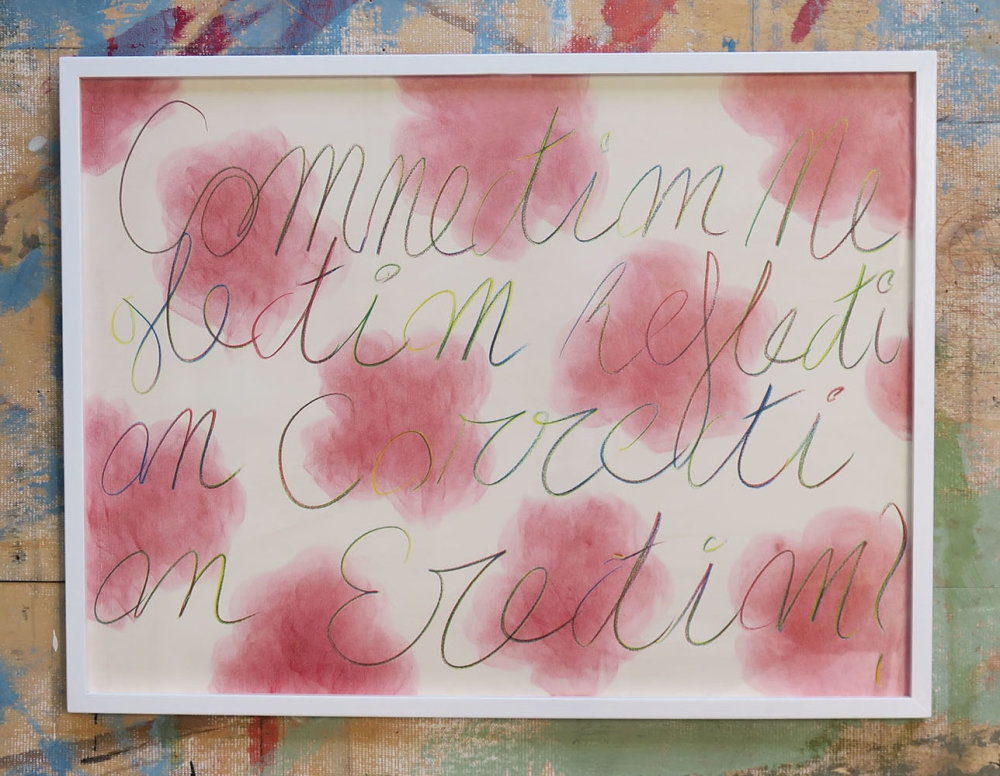 Connection Ne
glection Reflecti
on Correcti
on Erection?